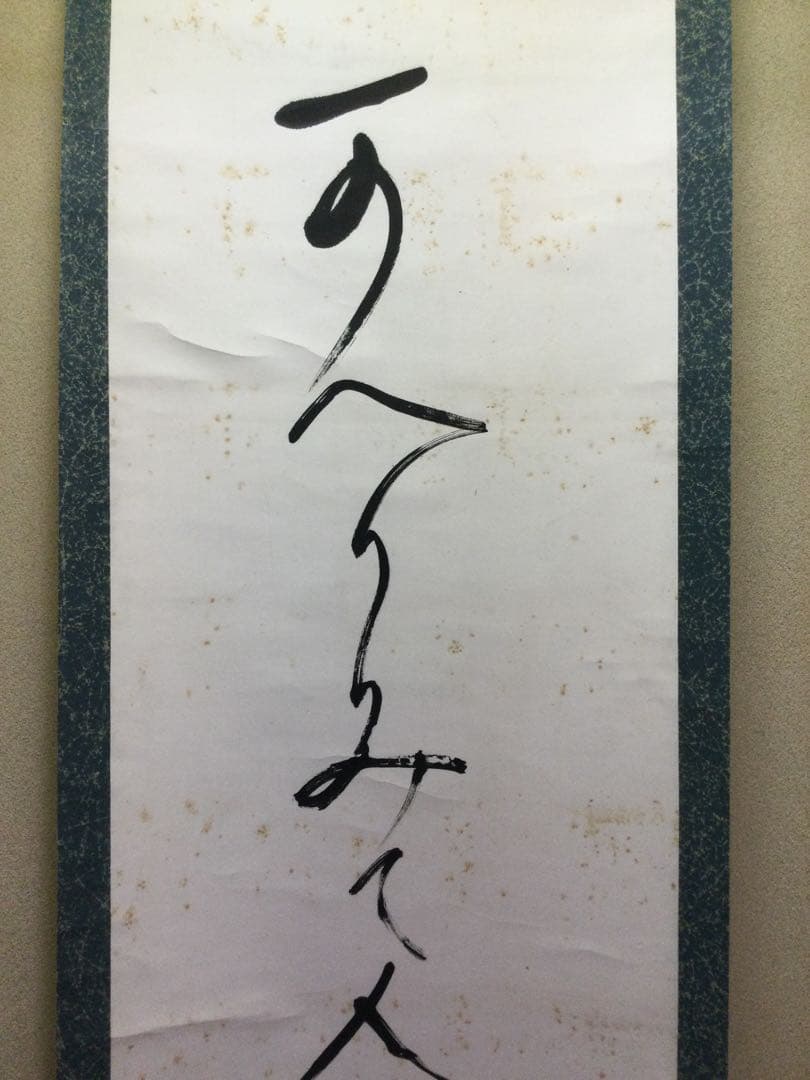 可へりみて人